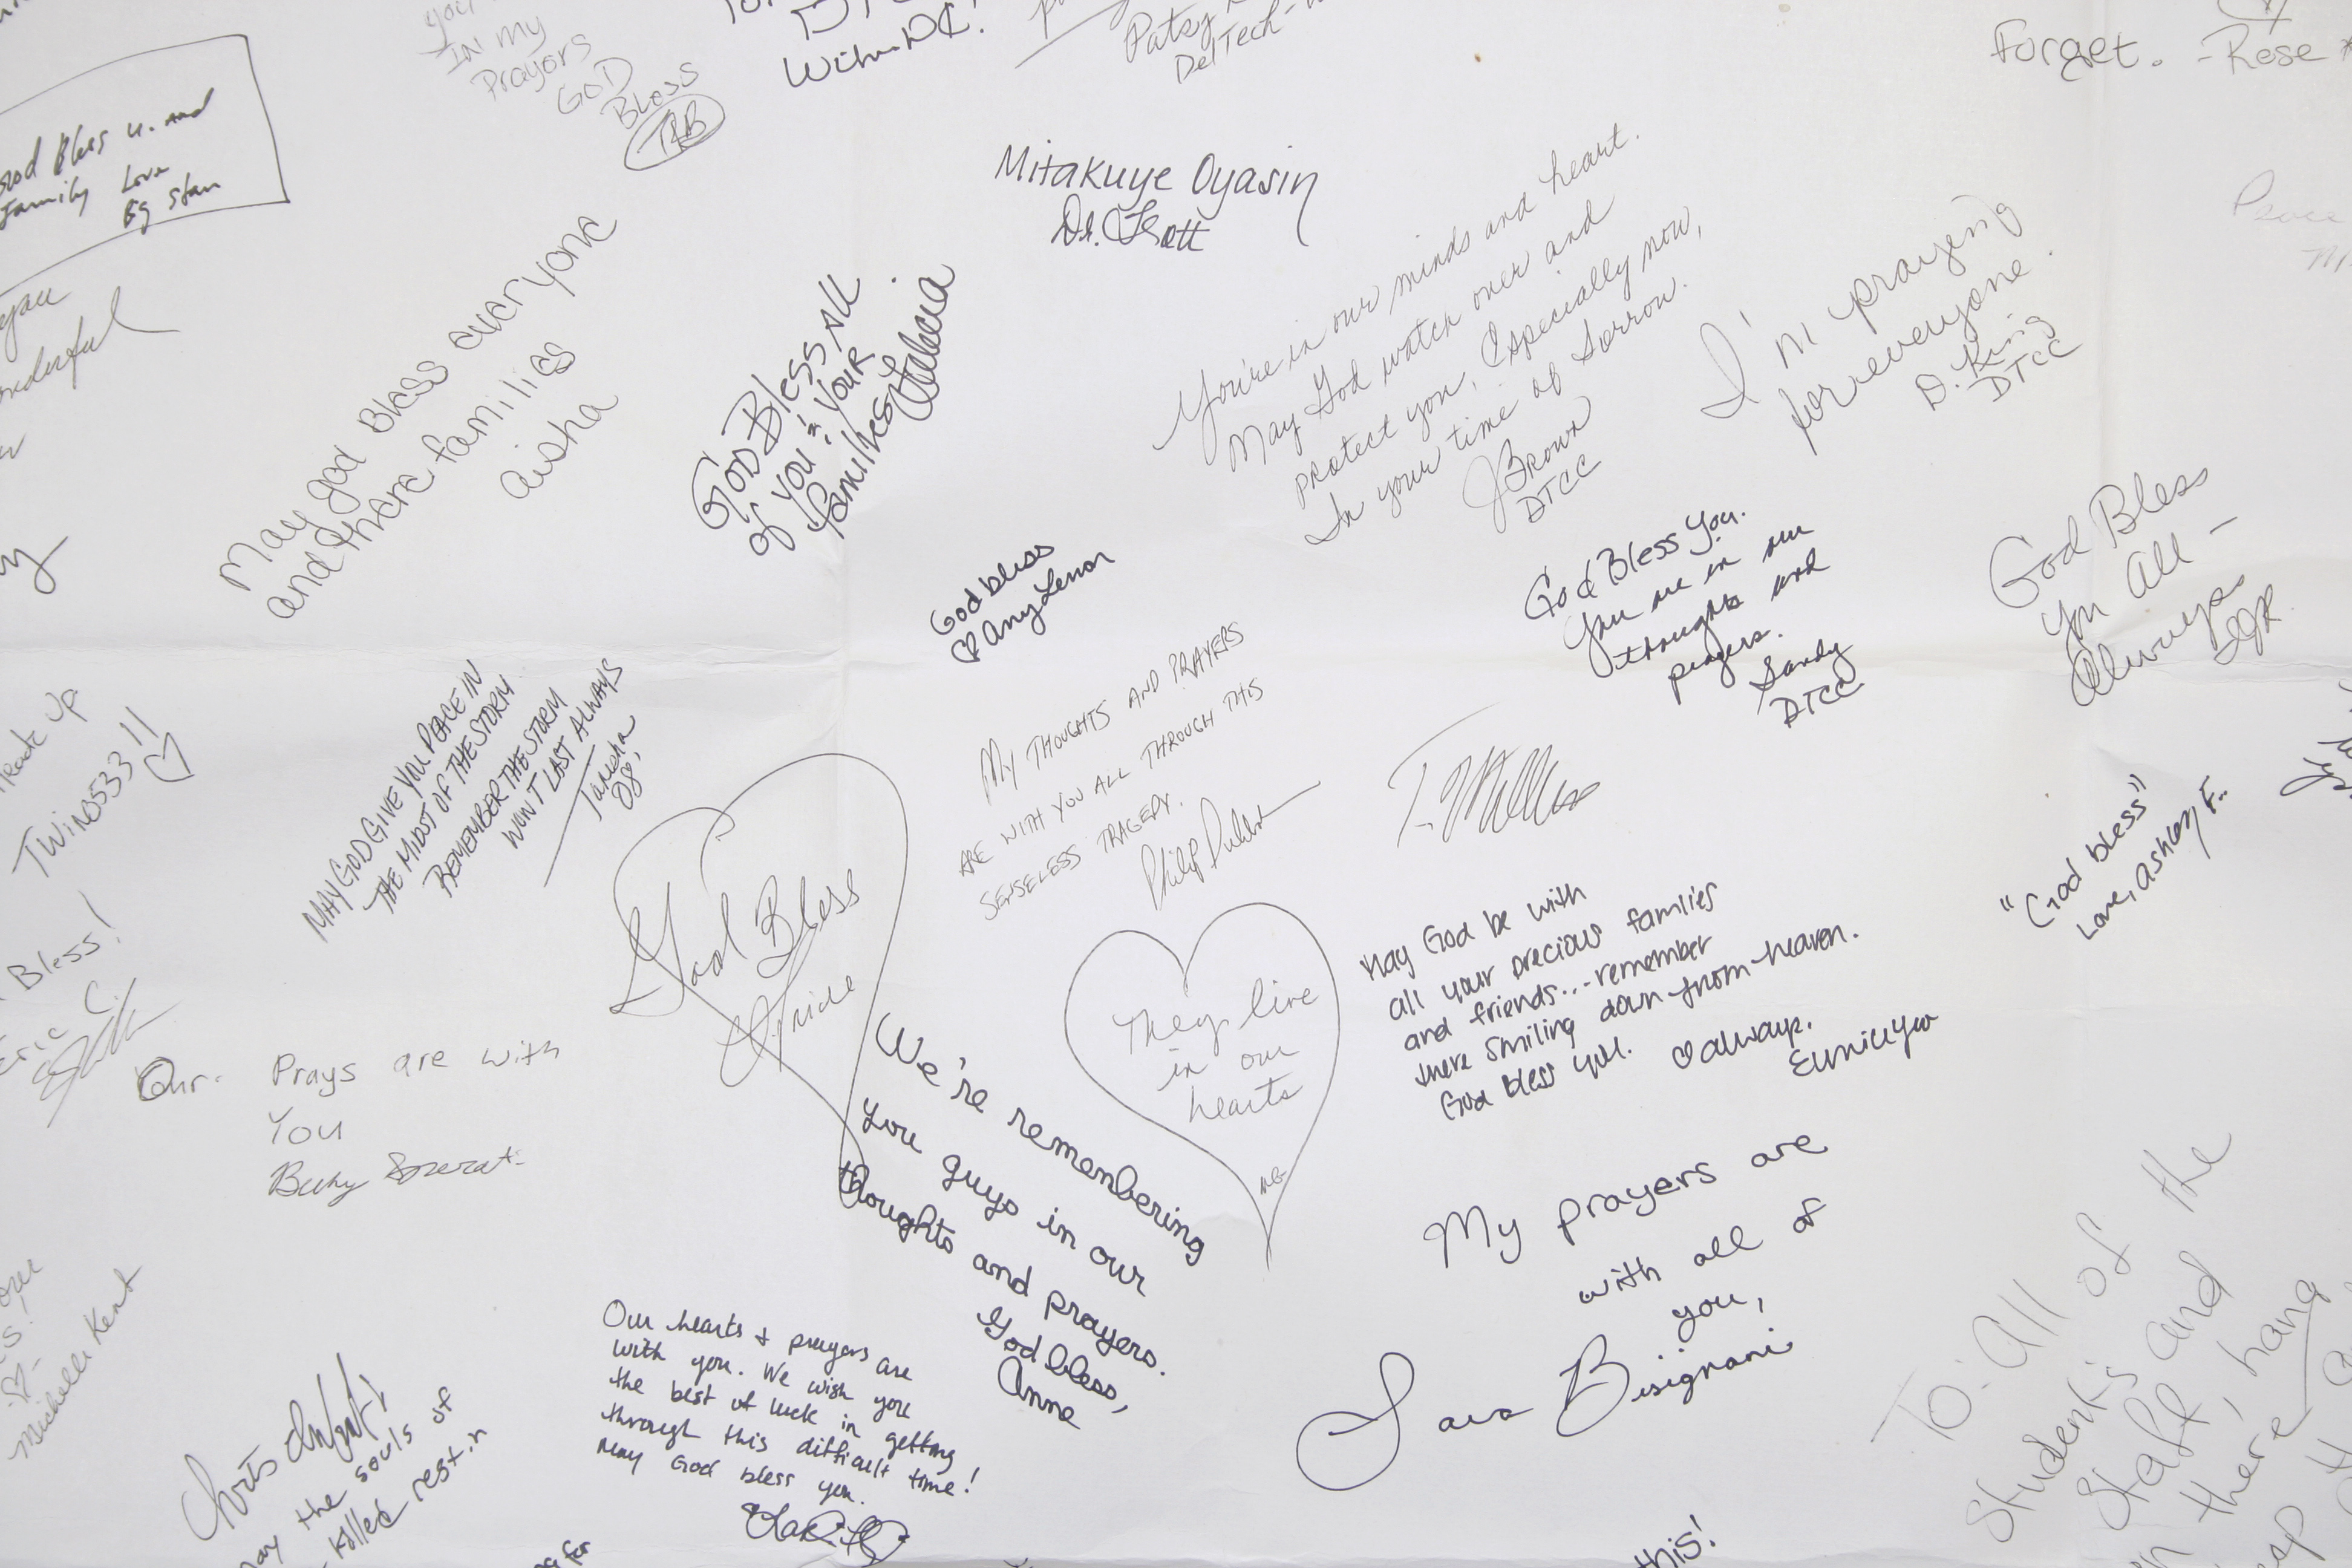 you
In my
Prayors
GOD
Bless
TRB
WilmDE!
Patsy
DelTech-
Forget. - Rose
Bles u. and
Family Love
Big Stan
Mitakuye Oyasin
Dr.
May god Bless everyone
and there families
aisha
God Bless All
of you & your
families
You're in our minds and heart.
May God watch over and
protect you, Especially now,
In your time of Sorrow.
JBrown
DTCC
I'm praying
for everyone.
D. King
DTCC
Peace
you
God bless
♡ Amy Lenon
God Bless You.
You are in our
thoughts and
prayers.
Sandy
DTCC
God Bless
You All -
Always
MAY GOD GIVE YOU PEACE IN
THE MIDST OF THE STORM
REMEMBER THE STORM
WON'T LAST ALWAYS
Tanisha
08
My THOUGHTS AND PRAYERS
ARE WITH YOU ALL THROUGH THIS
SENSELESS TRAGEDY.
Philip
Up
TWin0533!! ♡
God Bless
"God bless"
Love, Ashley F..
Bless!
Eric C.
They live
in our
hearts
May God be with
all your precious families
and friends...-remember
there smiling down from heaven.
God bless you. ♡ always.
Our Prays are with
You
Becky
We're remembering
you guys in our
thoughts and prayers.
God bless,
Anne
My prayers are
with all of
you,
Sara Bisignani
Michelle Kent
Our hearts + prayers are
with you. We wish you
the best of luck in getting
through this difficult time!
May God bless you.
the souls of
killed rest in
To: All of the
Student's and
Staff, hang
there
for
this!